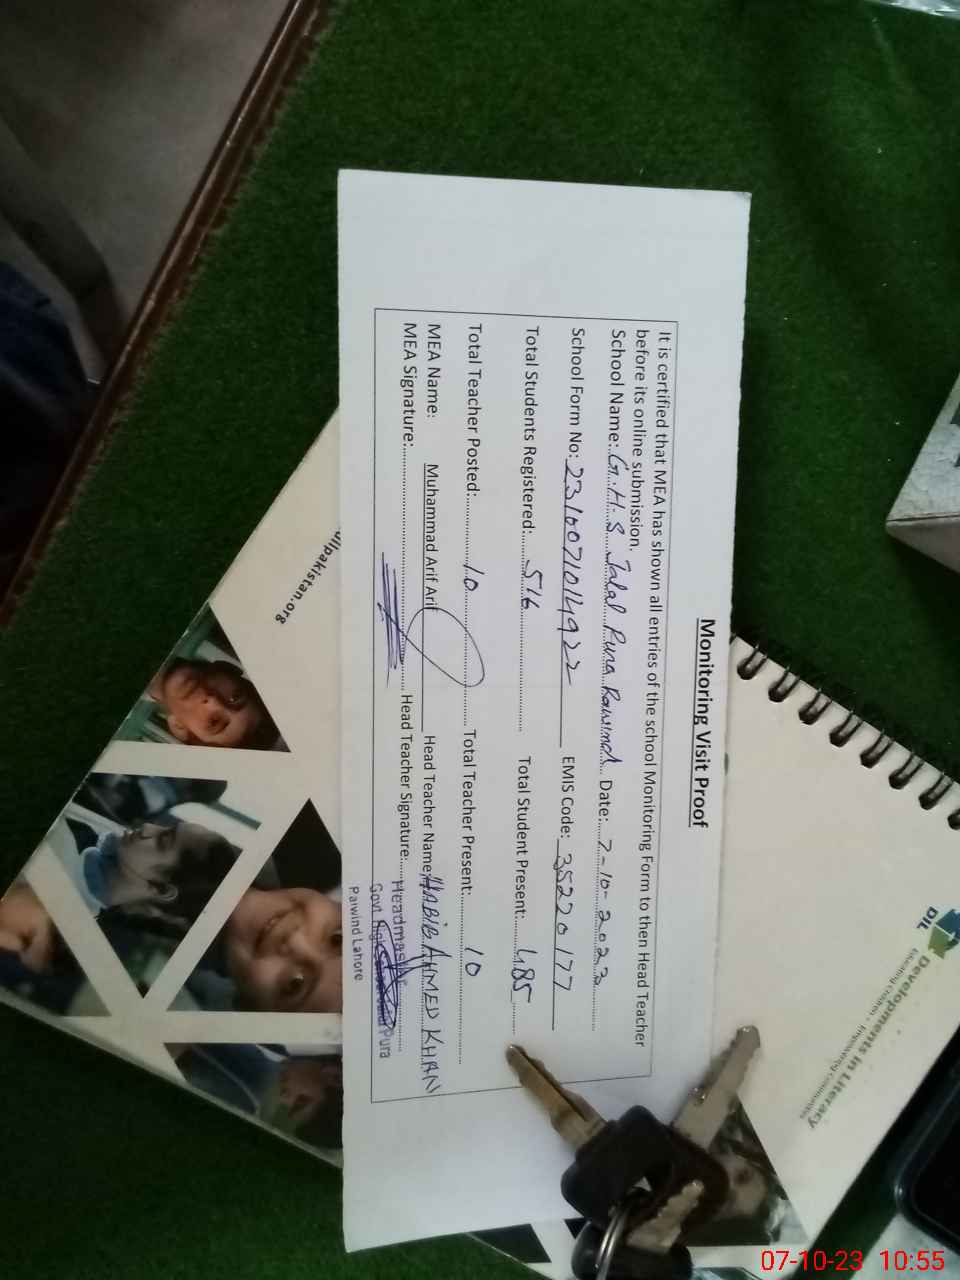 Monitoring Visit Proof
It is certified that MEA has shown all entries of the school Monitoring Form to then Head Teacher
before its online submission.
School Name: G.H.S Jalal Pura Raiwind Date: 7-10-2023
School Form No: 2310071014922 EMIS Code: 35220177
Total Students Registered: 516 Total Student Present: 485
Total Teacher Posted: 10 Total Teacher Present: 10
MEA Name: Muhammad Arif Arif Head Teacher Name: HABIB AHMED KHAN
MEA Signature: Head Teacher Signature:
Headmaster
Govt High School Jalal Pura
Raiwind Lahore
dilpakistan.org
DIL Developments in Literacy
Educating Children • Empowering Communities
07-10-23 10:55